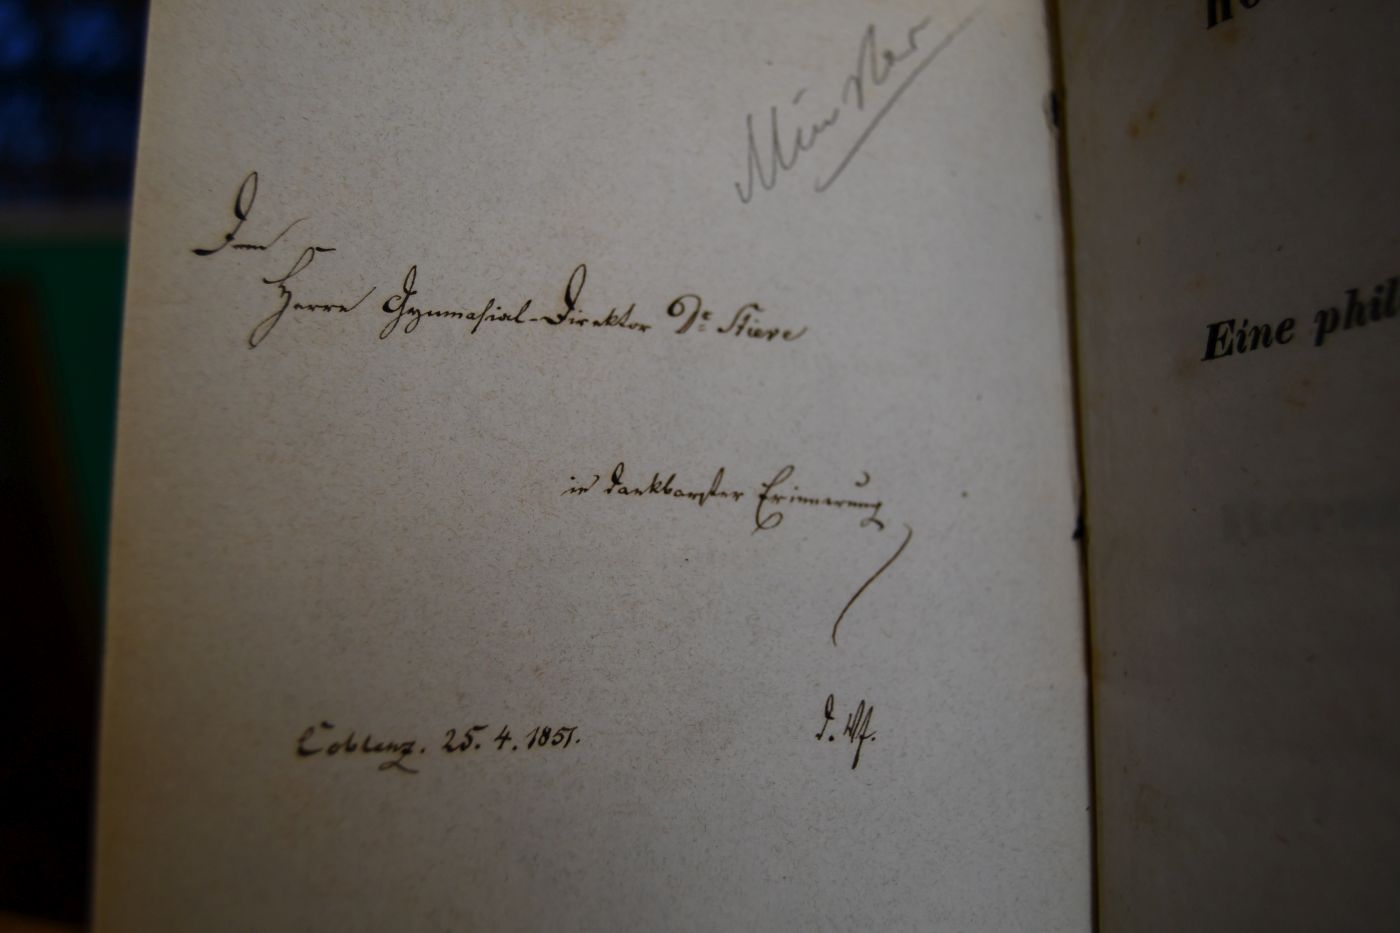 Münster
Dem
Herrn Gymnasial-Direktor Dr Stieve
in dankbarster Erinnerung
d. Vf.
Coblenz. 25. 4. 1851.
Eine phil